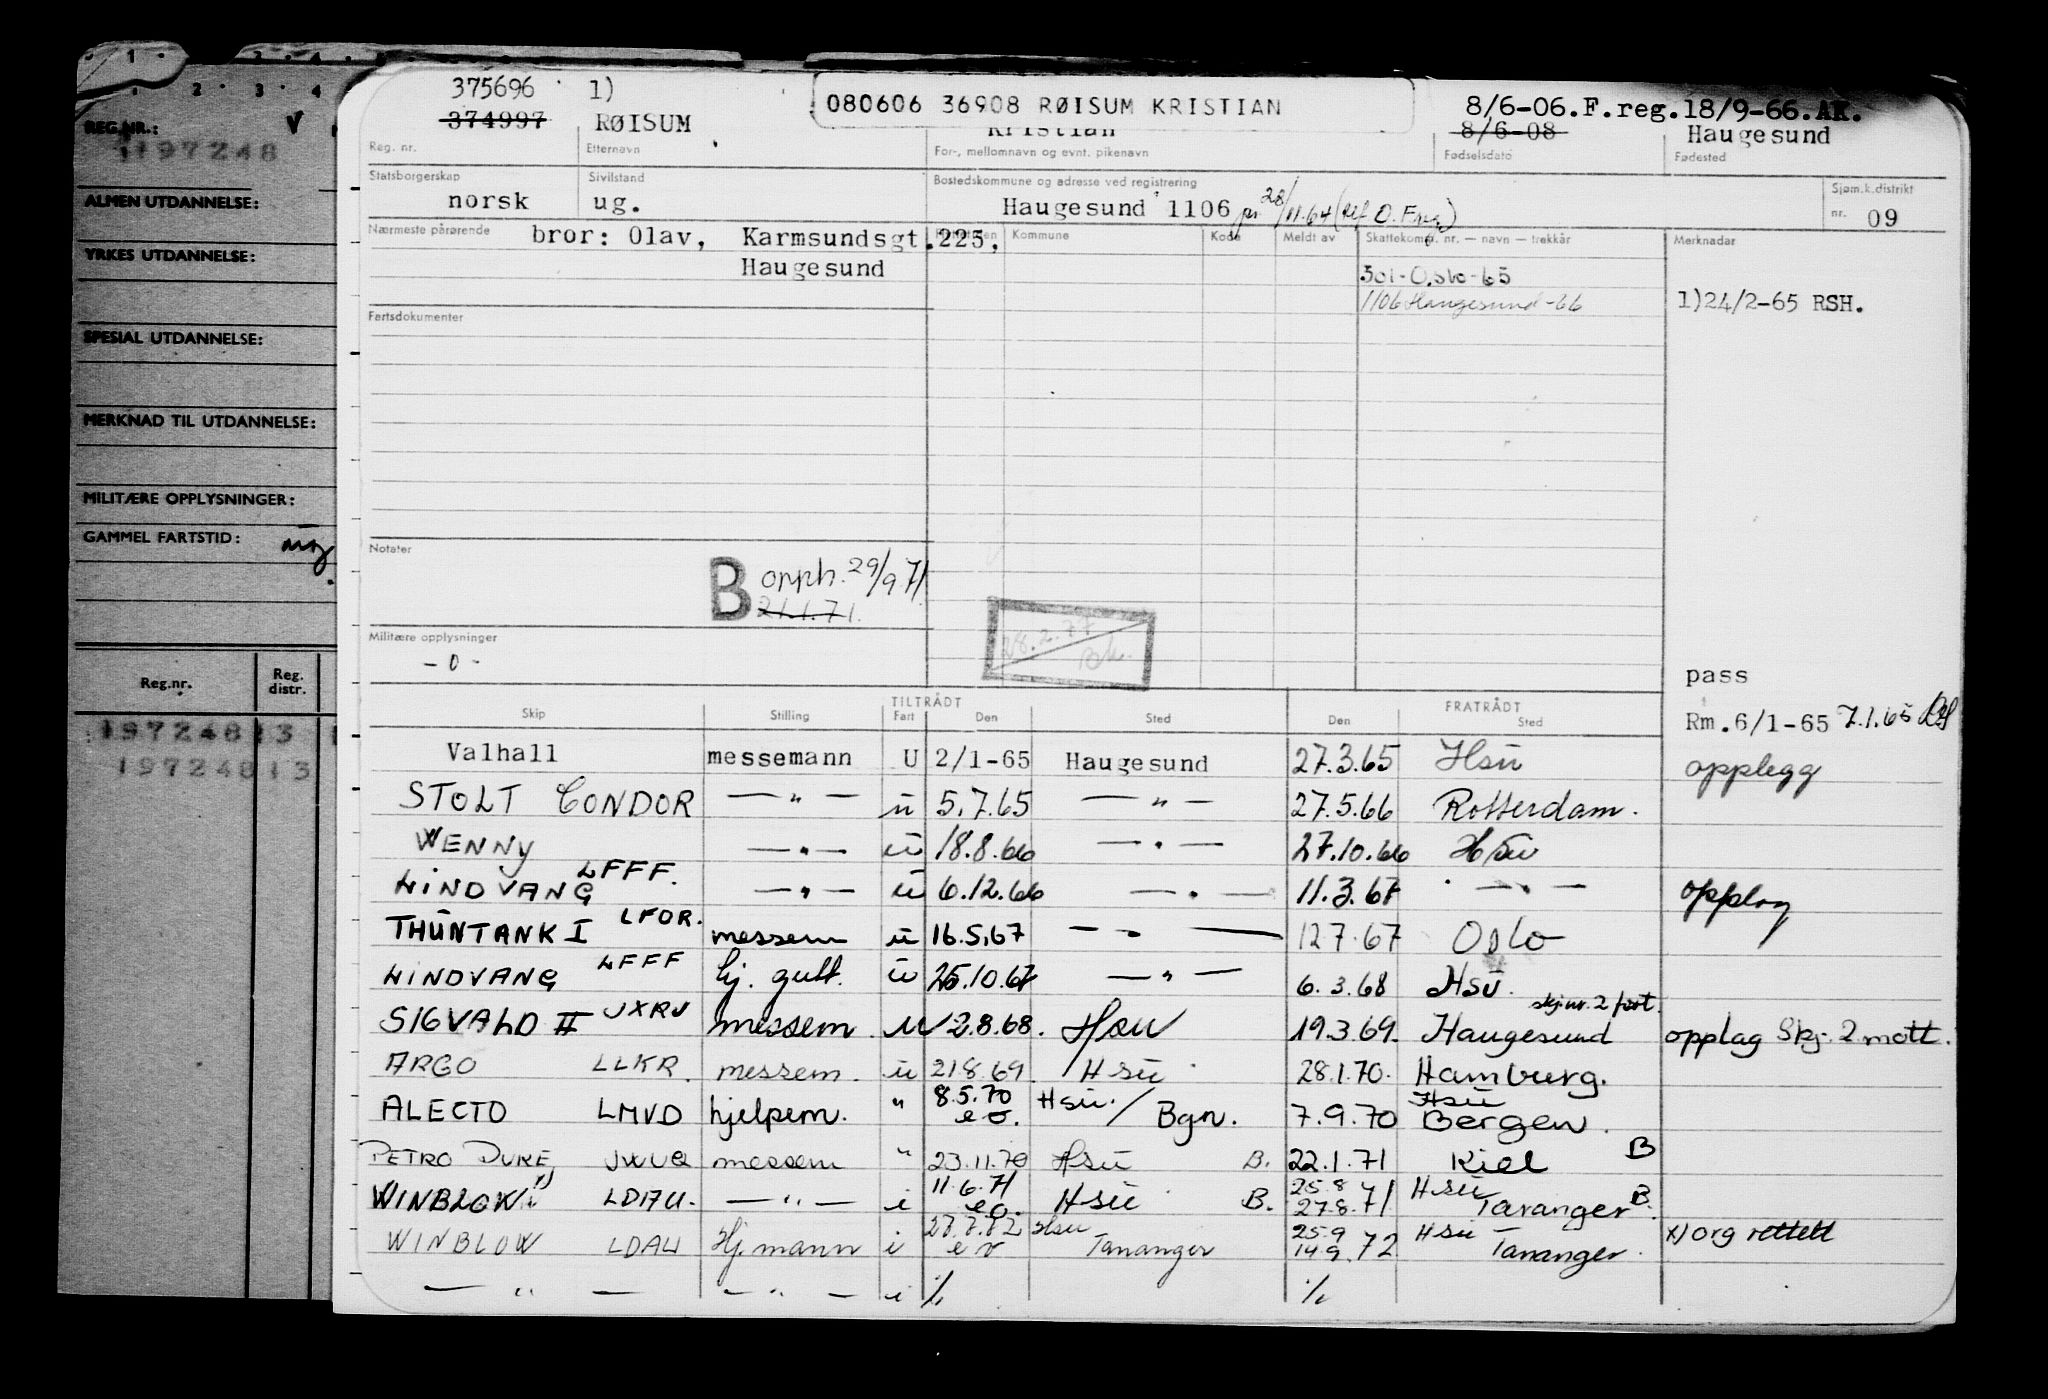 REG.NR.: V
1197248
ALMEN UTDANNELSE:
YRKES UTDANNELSE:
SPESIAL UTDANNELSE:
MERKNAD TIL UTDANNELSE:
MILITÆRE OPPLYSNINGER:
GAMMEL FARTSTID:
Reg.nr. Reg. distr.
19724813
19724813
375696 1) 080606 36908 RØISUM KRISTIAN 8/6-06.F.reg.18/9-66.AK.
374997 RØISUM Kristian 8/6-08 Haugesund
Reg. nr. Etternavn For-, mellomnavn og evnt. pikenavn Fødselsdato Fødested
Statsborgerskap Sivilstand Bostedskommune og adresse ved registrering Sjøm.k.distrikt
norsk ug. Haugesund 1106 pr. 28/11.64 nr. 09
Nærmeste pårørende bror: Olav, Karmsundsgt.225, Kommune Kode Meldt av Skattekomm. nr. — navn — trekkår Merknader
Haugesund 301-Oslo-65
1106 Haugesund-66 1)24/2-65 RSH.
Fartsdokumenter
Notater
B opph. 29/9 71
21.1.71.
28.2.77
Militære opplysninger
- 0 -
pass
Skip Stilling TILTRÅDT Fart Den Sted FRATRÅDT Den Sted Rm.6/1-65 7.1.65
Valhall messemann U 2/1-65 Haugesund 27.3.65 Hsu opplegg
STOLT CONDOR — " — u 5.7.65 — " — 27.5.66 Rotterdam.
WENNY — " — u 18.8.66 — " — 27.10.66 Hsu
LINDVANG LFFF. — " — u 6.12.66 — " — 11.3.67 — " — opplag
THUNTANK I LFOR. messem u 16.5.67 — " — 12.7.67 Oslo
LINDVANG LFFF hj. gutt. u 25.10.67 — " — 6.3.68 Hsu.
skj.nr. 2 fort.
SIGVALD II JXRV messem. u 2.8.68. Hsu 19.3.69. Haugesund opplag Skj. 2 mott.
ARGO LLKR. messem. u 21.8.69. Hsu 28.1.70. Hamburg.
ALECTO LMVD hjelpem. " 8.5.70 e o. Hsu./Bgn. 7.9.70 Hsu Bergen.
PETRO DUKE, JWUQ messem " 23.11.70 Hsu B. 22.1.71 Kiel B
WINBLOW LDAU. — " — i 11.6.71 e o. Hsu B. 25.8 27.8.71 Hsu Tananger B.
WINBLOW LDAU Hj.mann i e o Hsu Tananger 25.9 14.9.72 Hsu Tananger. x) org rettet
— " — — " — i ./. ./.